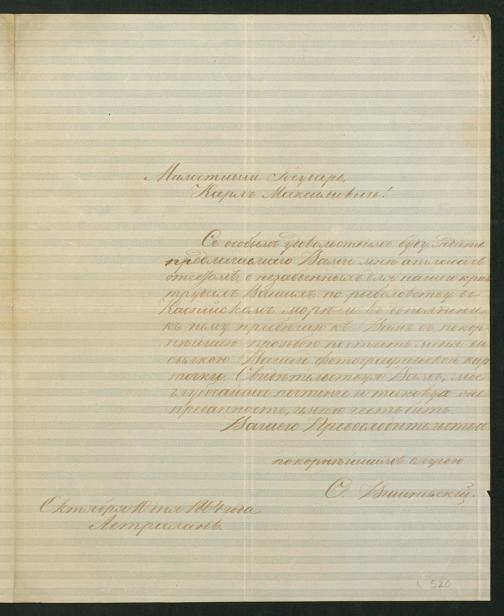 Милостивый Государь
Карлъ Максимовичъ!
Съ особымъ удовольствіемъ буду
предлагаемаго Вами мнѣ атласа съ
о незабвенныхъ для нашего края
трудахъ Вашихъ по рыболовству въ
Каспійскомъ морѣ и въ дополненіе
къ нему прибѣгаю къ Вамъ съ покор-
нѣйшею просьбою почтить меня вы-
сылкою Вашей фотографической кар-
точки. Свидѣтельствуя Вамъ, мое
глубочайшее почтеніе и таковую же
преданность, имѣю честь быть
Вашего Превосходительства
покорнѣйшимъ слугою
Октября 10 дня 1864 года
Астрахань.
520